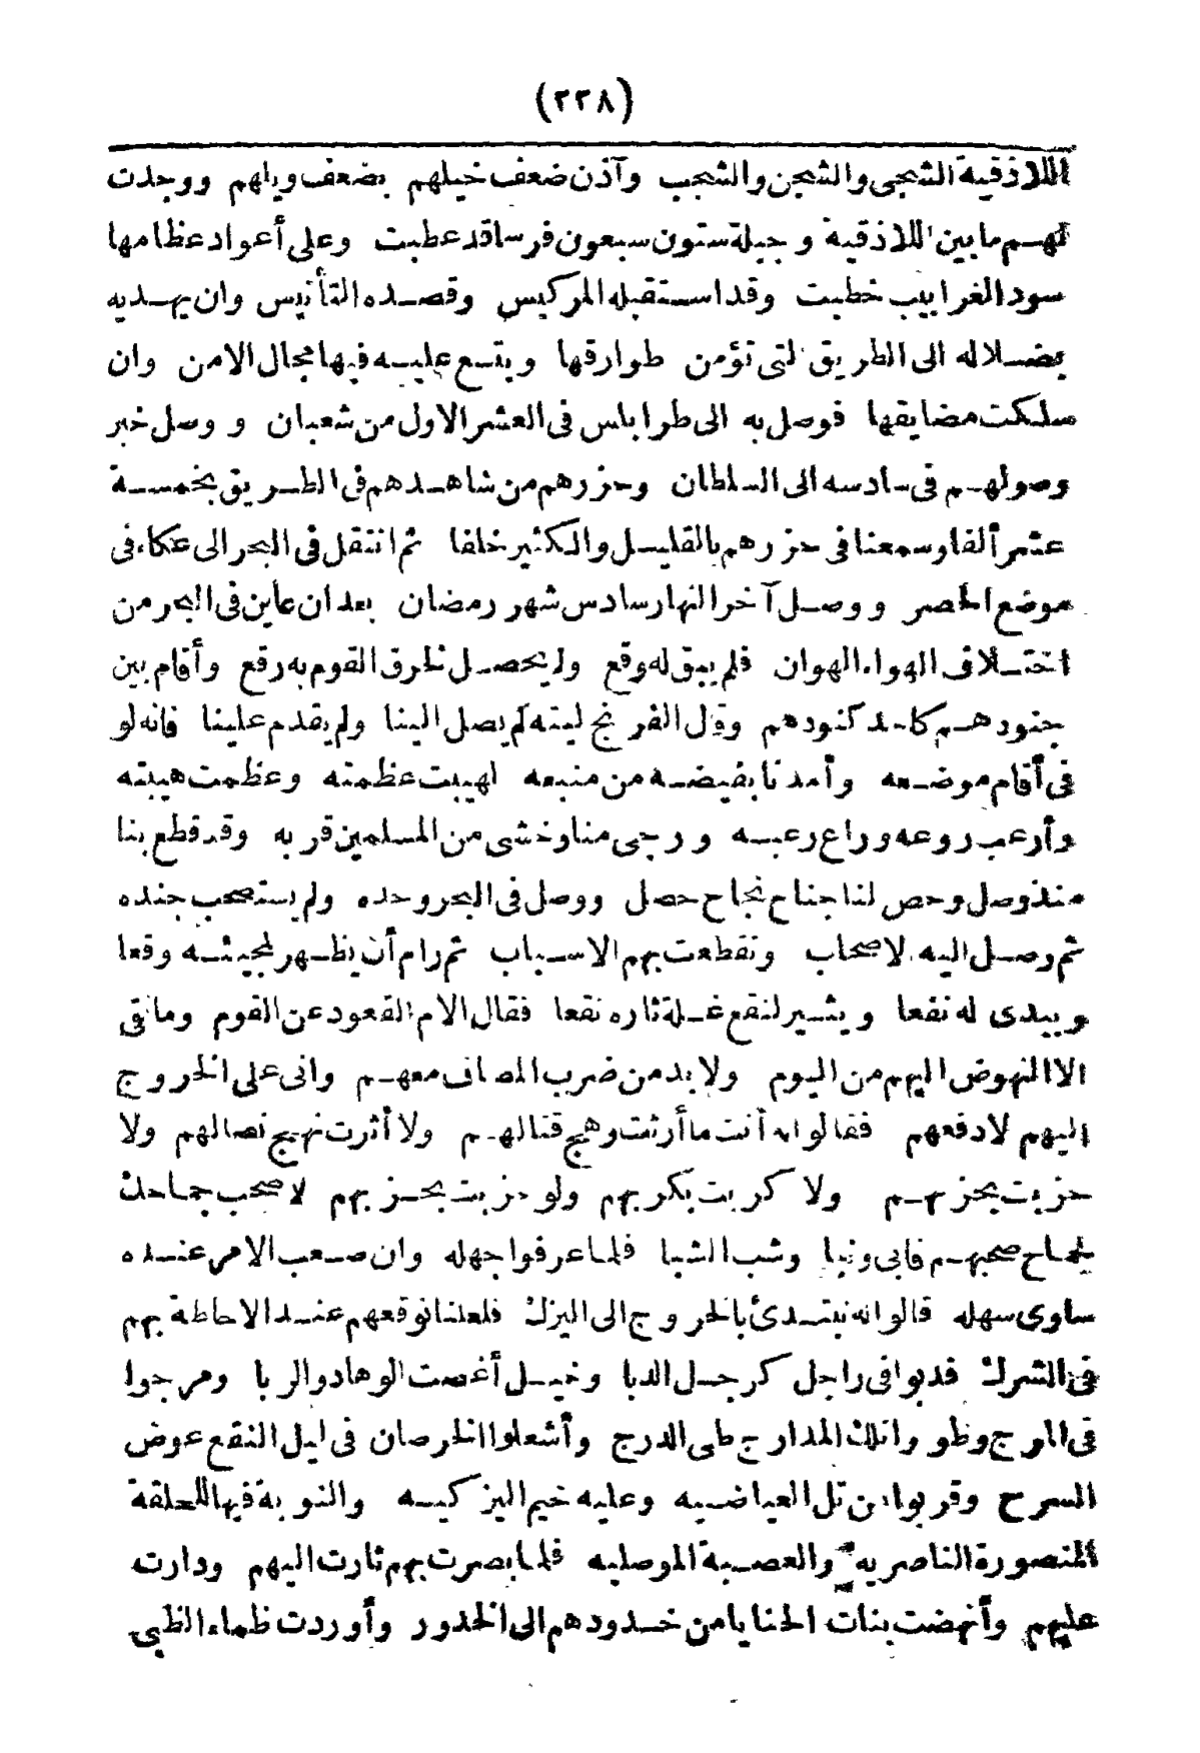 (٢٢٨)
اللاذقية الشجى والشجن والشجب وآذن ضعف خيلهم بضعف ويلهم ووجدت
لهم ما بين اللاذقية وجبلة ستون سبعون فرسا قد عطبت وعلى أعواد عظامها
سود الغرابيب خطبت وقد استقبله المركيس وقصده التأنيس وان يهديه
بضلاله الى الطريق التى تؤمن طوارقها ويتسع عليه فيها مجال الامن وان
سلكت مضايقها فوصل به الى طرابلس فى العشر الاول من شعبان ووصل خبر
وصولهم فى سادسه الى السلطان وحزرهم من شاهدهم فى الطريق بخمسة
عشر ألفا وسمعنا فى حزرهم بالقليل والكثير خلفا ثم انتقل فى البحر الى عكاء فى
موضع الحصر ووصل آخر النهار سادس شهر رمضان بعد ان عاين فى البحر من
اختلاف الهواء الهوان فلم يبق له وقع ولم يحصل لخرق القوم به رقع وأقام بين
جنودهم كامد كنودهم وقال الفرنج ليته لم يصل الينا ولم يقدم علينا فانه لو
فى أقام موضعه وأمدنا بفيضه من منبعه لهيبت عظمته وعظمت هيبته
وأرعب روعه وراع رعبه ورجى منا وخشى من المسلمين قربه وقد قطع بنا
منذ وصل وحص لنا جناح نجاح حصل ووصل فى البحر وحده ولم يستصحب جنده
ثم وصل اليه لاصحاب وتقطعت بهم الاسباب ثم رام أن يظهر لمجيئه وقعا
ويبدى له نفعا ويثير لنقع غلة ثاره نقعا فقال الام القعود عن القوم وما بقى
الا النهوض اليهم من اليوم ولا بد من ضرب المصاف معهم وانى على الخروج
اليهم لادفعهم فقالوا له أنت ما أرثت وهيج قتالهم ولا أثرت نهيج نصالهم ولا
حزبت بحزبهم ولا كربت بكربهم ولو حزبت بحزبهم لاصحب جماحك
لجماح صحبهم فابى ونبا وشب الشبا فلما عرفوا جهله وان صعب الامر عنده
ساوى سهله قالوا له نبتدئ بالخروج الى اليزك فلعلنا نوقعهم عند الاحاطة بهم
فى الشرك فدبوا فى راجل كرجل الدبا وخيل أغصت الوهاد والربا ومرجوا
فى المروج وطووا تلك المدارج طى الدرج وأشعلوا الخرصان فى ليل النقع عوض
السرج وقربوا من تل العياضيه وعليه خيم اليزكيه والنوبة فيها للحلقة
المنصورة الناصريه والعصبة الموصليه فلما بصرت بهم ثارت اليهم ودارت
عليهم وأنهضت بنات الحنايا من خدودهم الى الخدور وأوردت ظماء الظبى